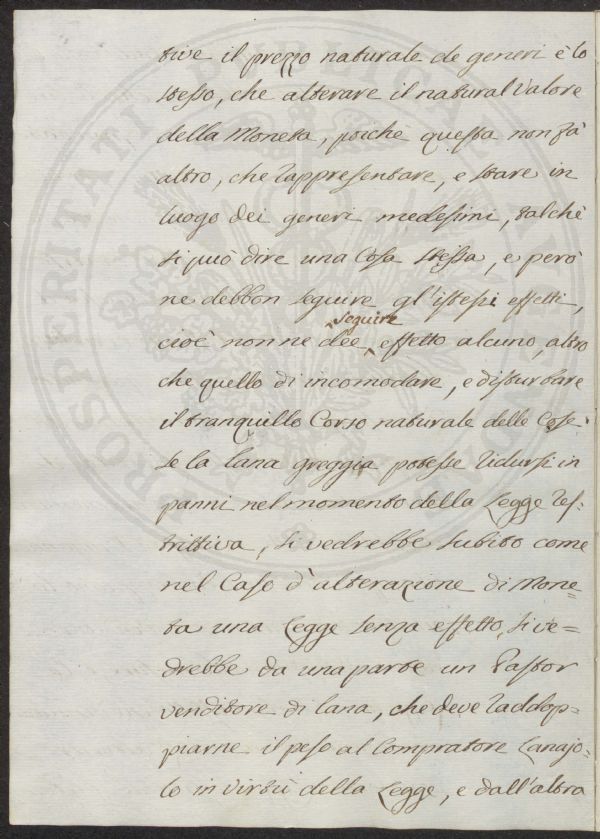 tive il prezzo naturale de generi è lo
stesso, che alterare il natural Valore
della Moneta, poichè questa non fà
altro, che rappresentare, e stare in
luogo dei generi medesimi, talchè
si può dire una Cosa stessa, e però
ne debbon seguire gl'istessi effetti,
seguire
cioè non ne dee effetto alcuno, altro
che quello di incomodare, e disturbare
il tranquillo Corso naturale delle Cose.
Se la lana greggia potesse ridursi in
panni nel momento della Legge res-
trittiva, si vedrebbe subito come
nel Caso d'alterazione di Mone=
ta una Legge senza effetto, si ve=
drebbe da una parte un Pastor
venditore di lana, che deve raddop=
piarne il peso al Compratore Lanajo=
lo in virtù della Legge, e dall'altra
PROSPERITATI PUBLICAE AUGENDAE